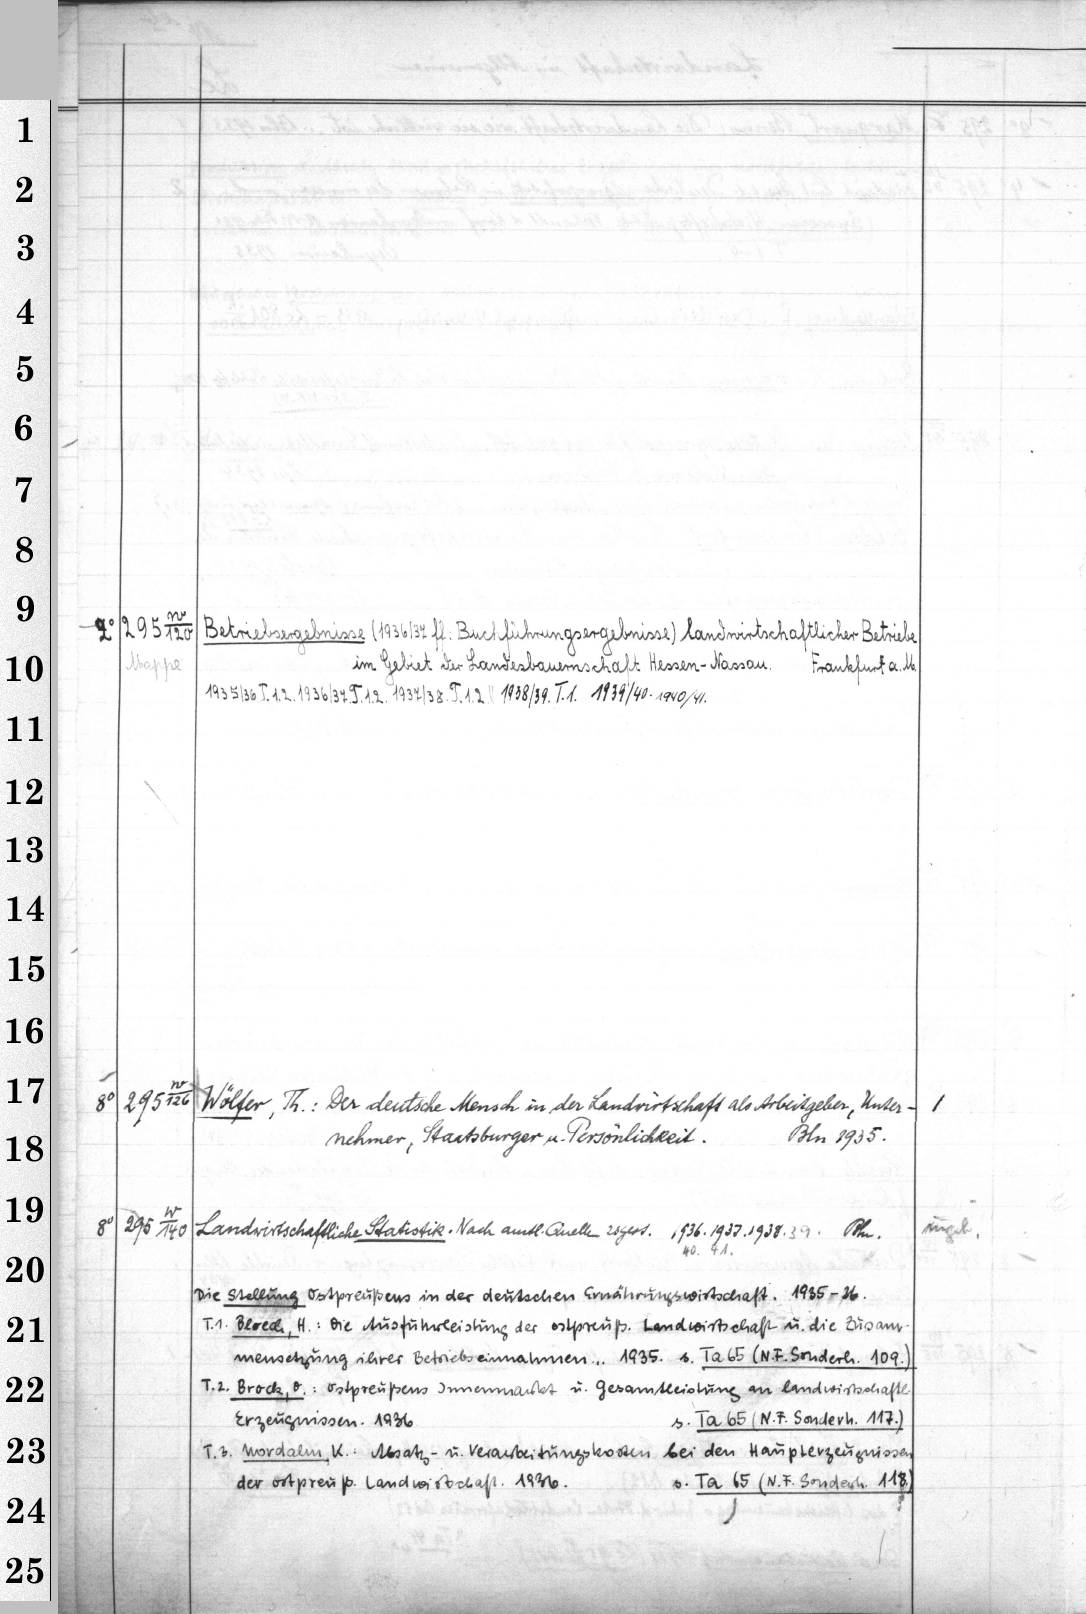 1
2
3
4
5
6
7
8
9
2° 295 w/120 Betriebsergebnisse (1936/37 ff.: Buchführungsergebnisse) landwirtschaftlicher Betriebe
10
Mappe im Gebiet der Landesbauernschaft Hessen-Nassau. Frankfurt a.M.
1935/36.T.1.2. 1936/37.T.1.2. 1937/38.T.1.2. 1938/39.T.1. 1939/40. 1940/41.
11
12
13
14
15
16
17
8° 295 w/126 Wölfer, Th.: Der deutsche Mensch in der Landwirtschaft als Arbeitgeber, Unter- 1
nehmer, Staatsburger u. Persönlichkeit. Bln 1935.
18
19
8° 295 w/140 Landwirtschaftliche Statistik. Nach amtl. Quellen zsgest. 1936.1937.1938.39. Bln. ungeb.
40. 41.
20
Die Stellung Ostpreußens in der deutschen Ernährungswirtschaft. 1935-36.
21
T.1. Bloech, H.: Die Ausfuhrleistung der ostpreuß. Landwirtschaft u. die Zusam-
mensetzung ihrer Betriebseinnahmen... 1935. s. Ta 65 (N.F. Sonderh. 109.)
22
T.2. Brock, O.: Ostpreußens Innenmarkt u. Gesamtleistung an landwirtschaftl.
Erzeugnissen. 1936 s. Ta 65 (N.F. Sonderh. 117.)
23
T.3. Nordalm, K.: Absatz- u. Verarbeitungskosten bei den Haupterzeugnissen
der ostpreuß. Landwirtschaft. 1936. s. Ta 65 (N.F. Sonderh. 118.)
24
25